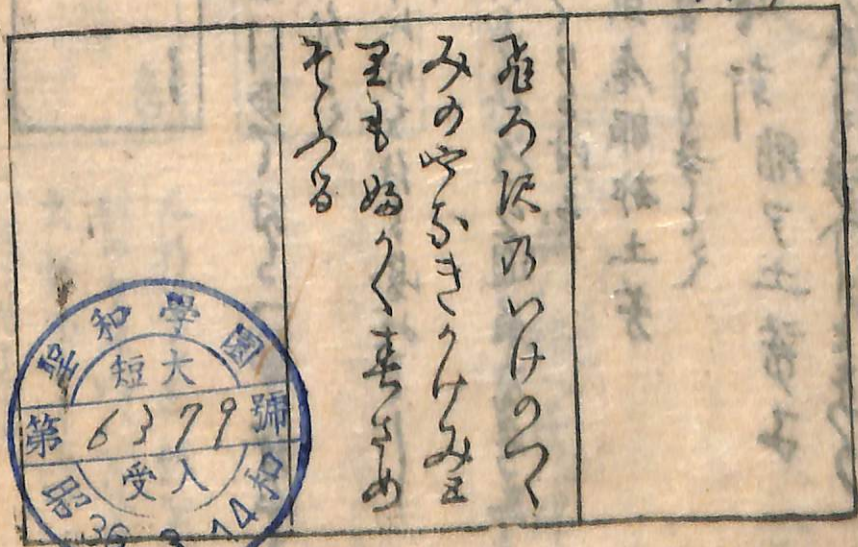 ひろ沢のいけのつゝ
みのやなきかけみと
りもふかく春さめ
そふる
聖和學園
短大
第6379號
受入
昭和